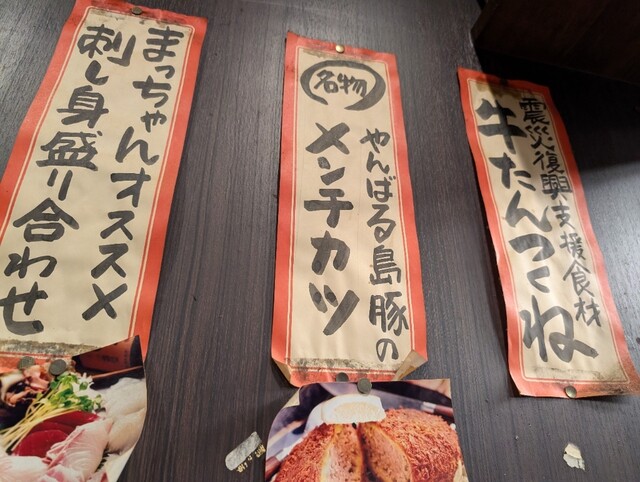 震災復興支援食材
牛たんつくね
名物
やんばる島豚の
メンチカツ
まっちゃんオススメ
刺し身盛り合わせ